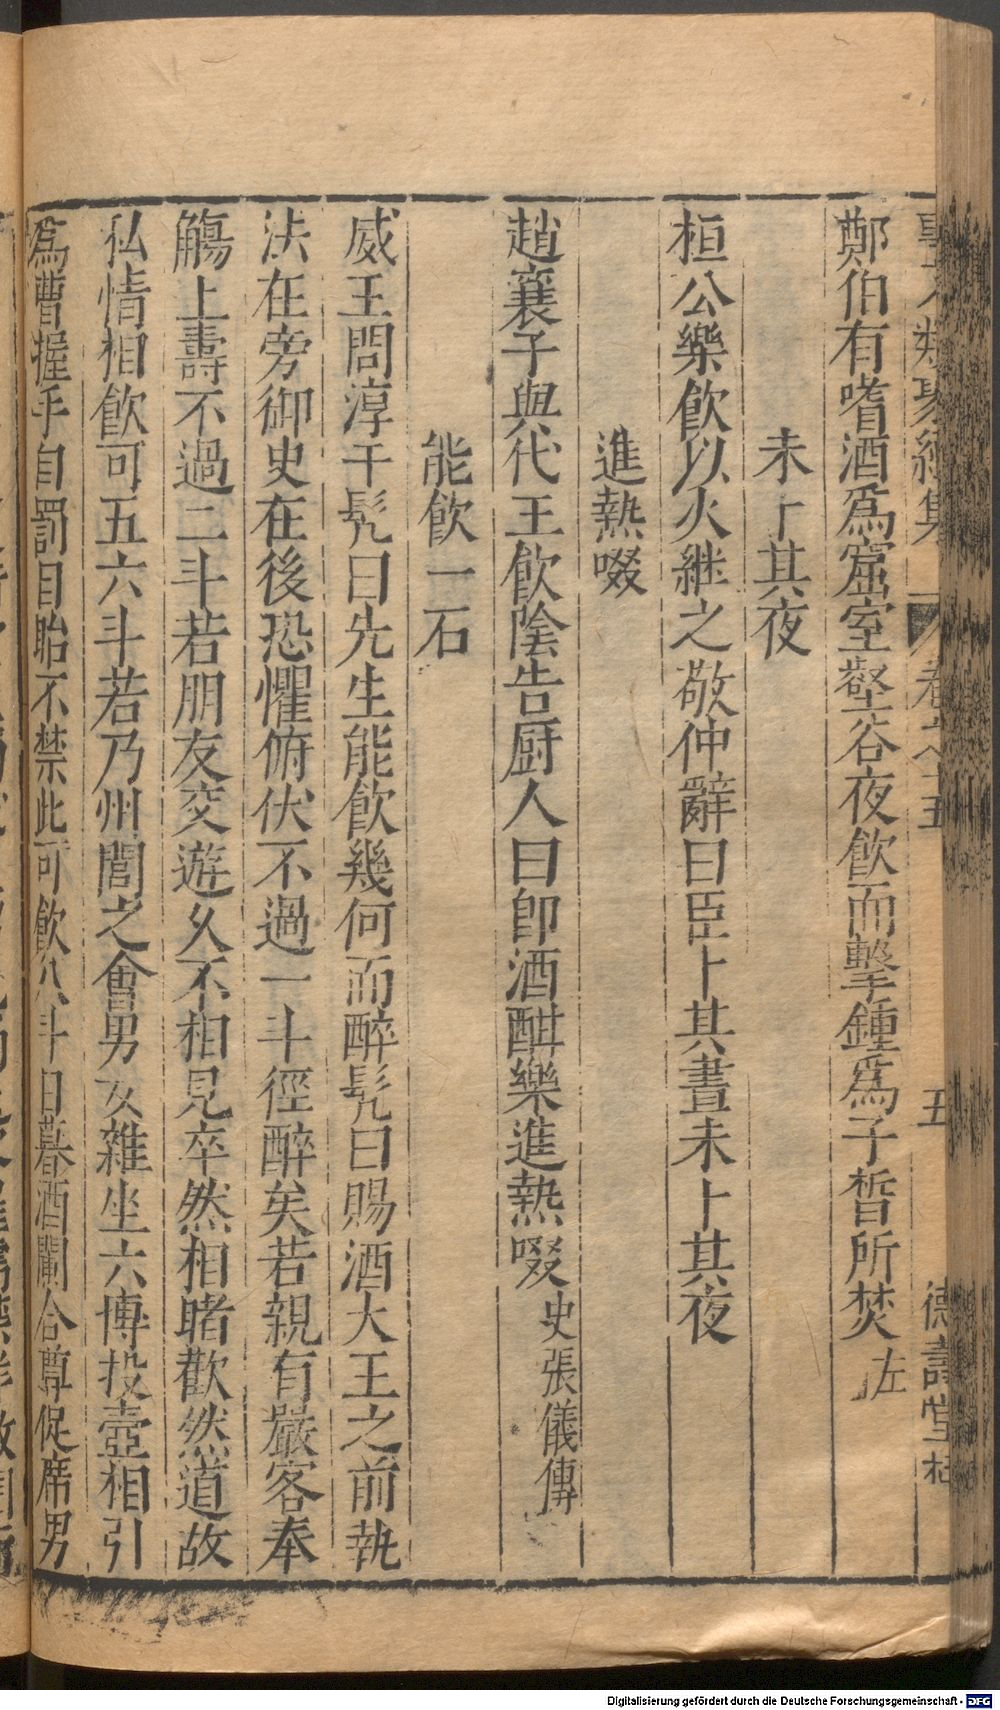 鄭伯有嗜酒爲窟室壑谷夜飲而擊鍾爲子晳所焚 左
未卜其夜
桓公樂飲以火継之敬仲辭曰臣卜其晝未卜其夜
進熱啜
趙襄子與代王飲陰告厨人曰卽酒酣樂進熱啜 史張儀傳
能飲一石
威王問淳于髡曰先生能飲幾何而醉髡曰賜酒大王之前執
法在旁御史在後恐懼俯伏不過一斗徑醉矣若親有嚴客奉
觴上壽不過二斗若朋友交遊久不相見卒然相睹歡然道故
私情相飲可五六斗若乃州閭之會男女雜坐六博投壺相引
爲曹握手自罰目眙不禁此可飲八斗日暮酒闌合尊促席男
卷之十五 五 德壽堂梓
Digitalisierung gefördert durch die Deutsche Forschungsgemeinschaft - DFG